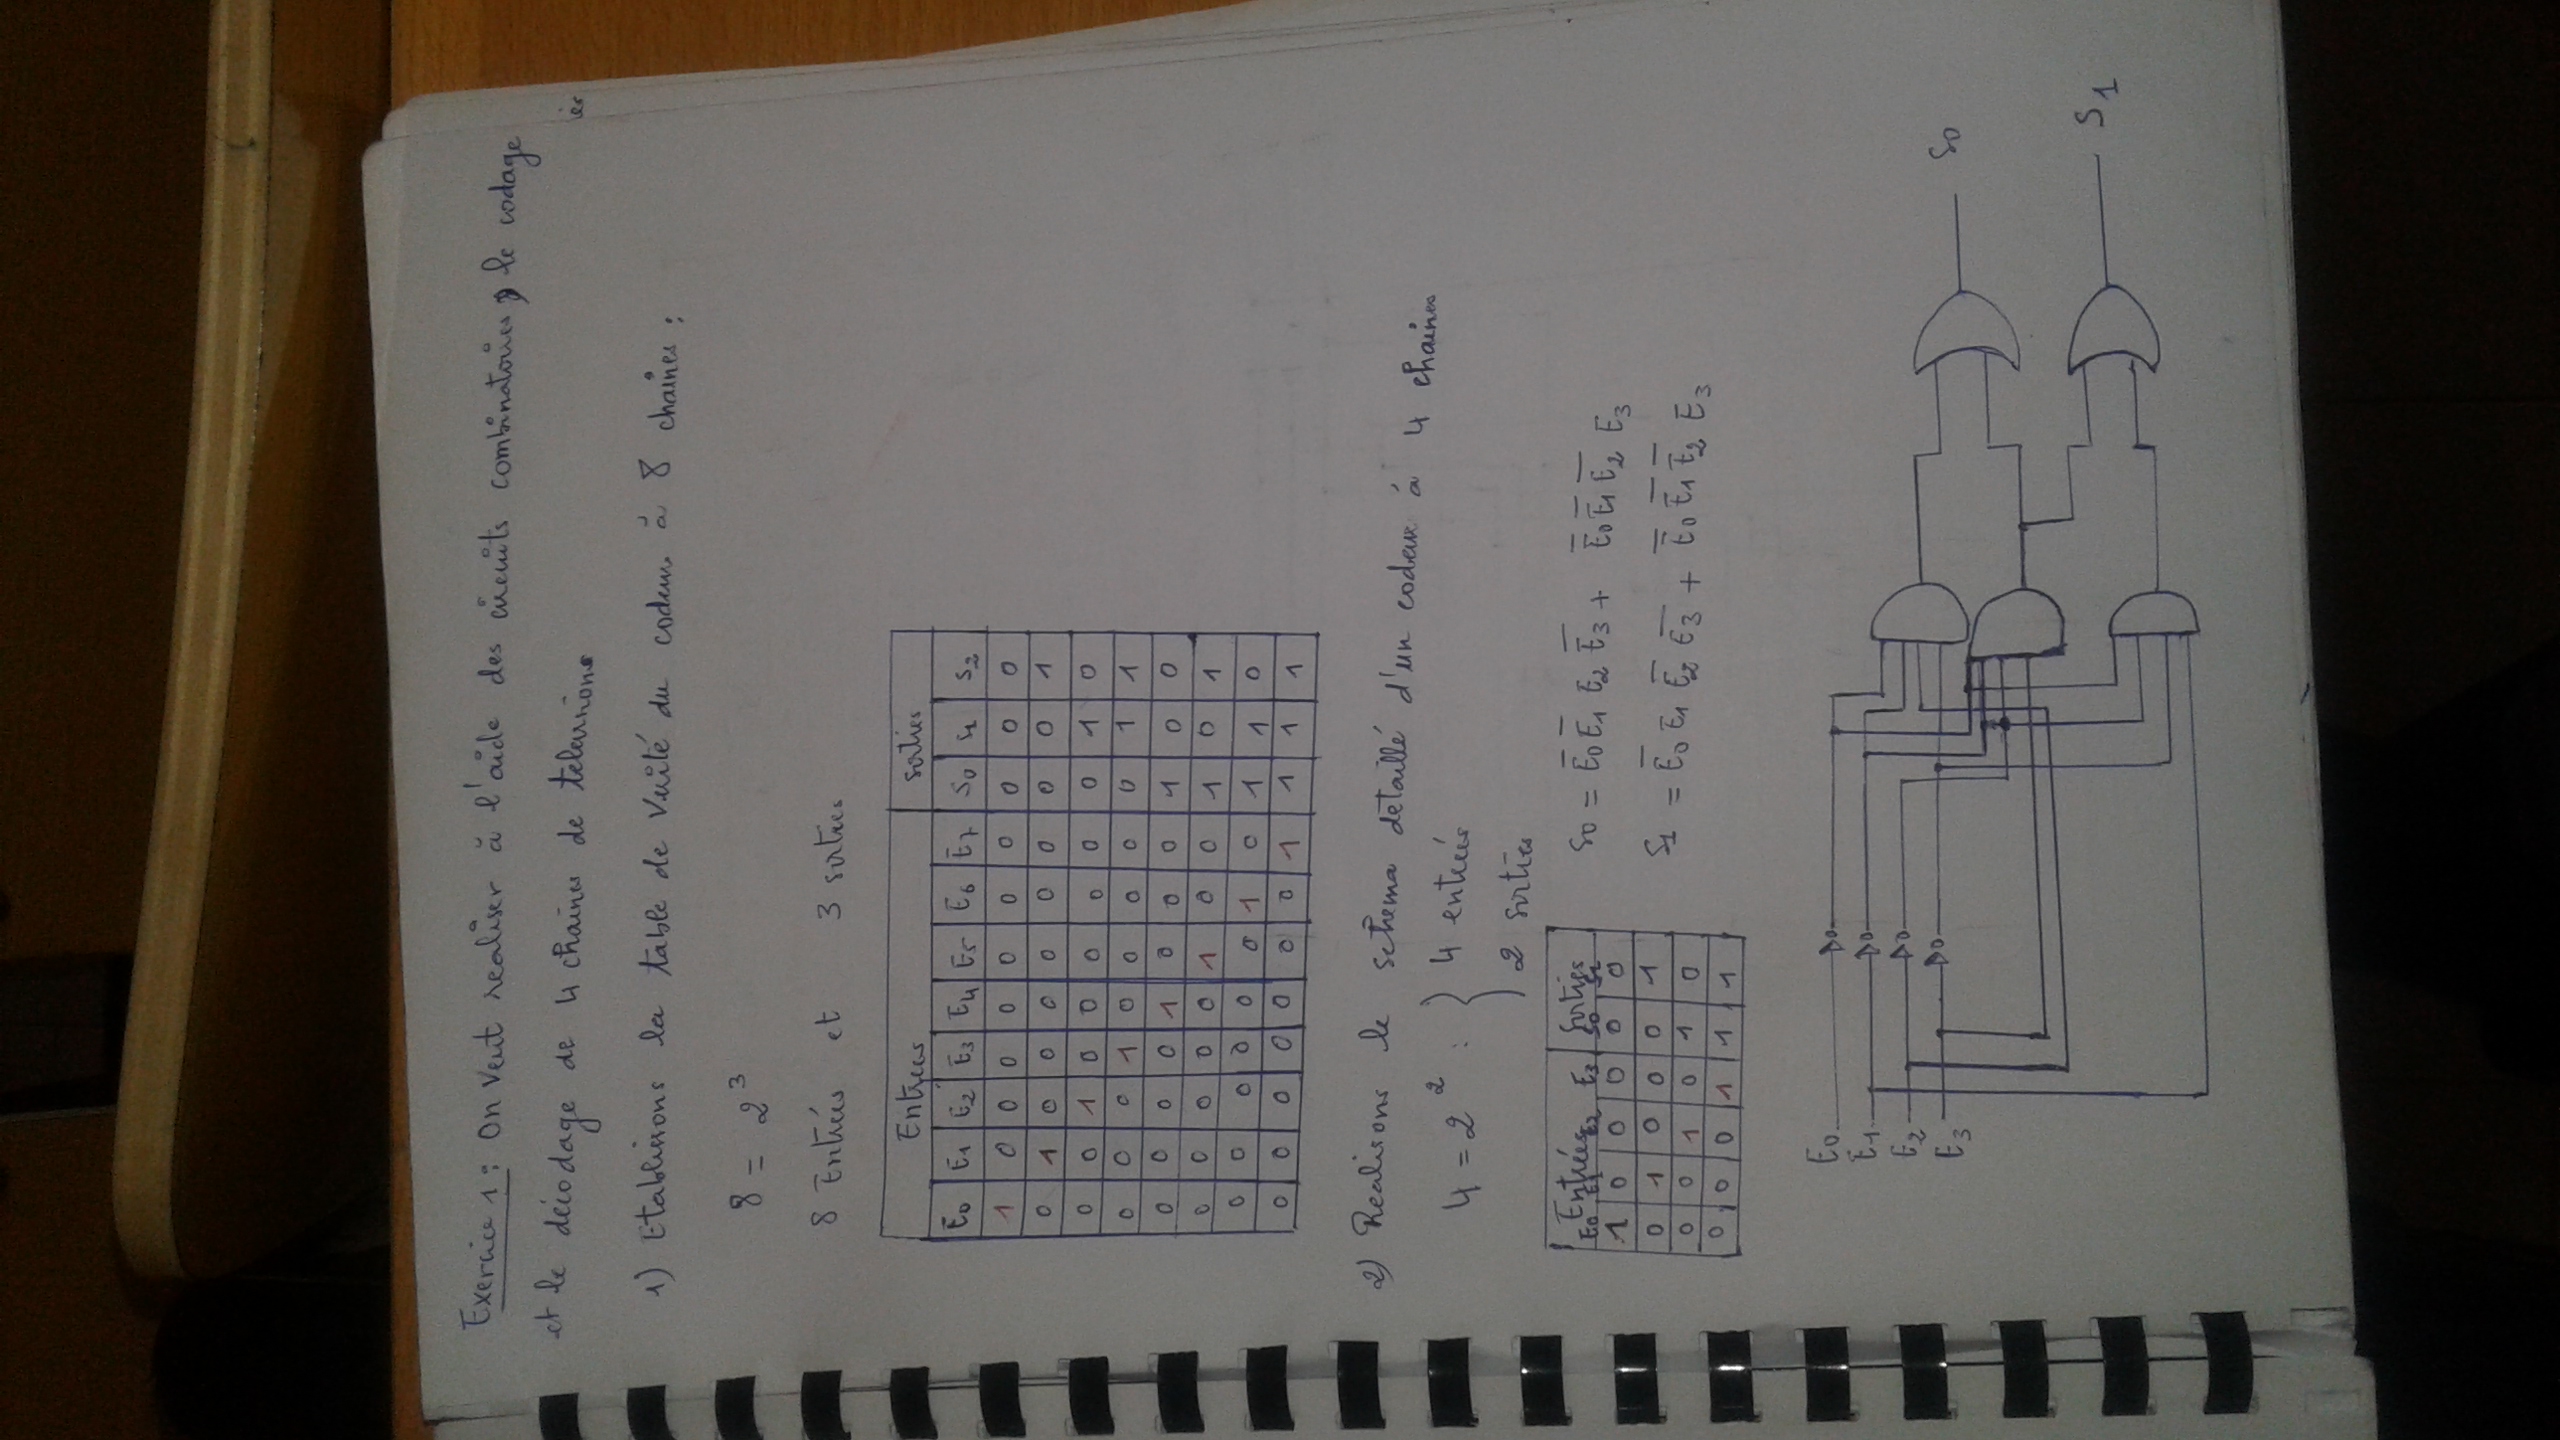 Exercice 1 : On veut realiser à l'aide des circuits combinatoires, le codage
et le décodage de 4 chaines de televisions
1) Etablissons la table de verité du codeur à 8 chaines :
8 = 2³
8 Entrées et 3 sorties
Entrees sorties
E0 E1 E2 E3 E4 E5 E6 E7 S0 S1 S2
1 0 0 0 0 0 0 0 0 0 0
0 1 0 0 0 0 0 0 0 0 1
0 0 1 0 0 0 0 0 0 1 0
0 0 0 1 0 0 0 0 0 1 1
0 0 0 0 1 0 0 0 1 0 0
0 0 0 0 0 1 0 0 1 0 1
0 0 0 0 0 0 1 0 1 1 0
0 0 0 0 0 0 0 1 1 1 1
2) Realisons le schema détaillé d'un codeur à 4 chaines
4 = 2² : } 4 entrées
2 sorties
Entrées Sorties
E0 E1 E2 E3 S0 S1
1 0 0 0 0 0
0 1 0 0 0 1
0 0 1 0 1 0
0 0 0 1 1 1
S0 = E̅0 E̅1 E2 E̅3 + E̅0 E̅1 E̅2 E3
S1 = E̅0 E1 E̅2 E̅3 + E̅0 E̅1 E̅2 E3
E0
E1
E2
E3
S0
S1